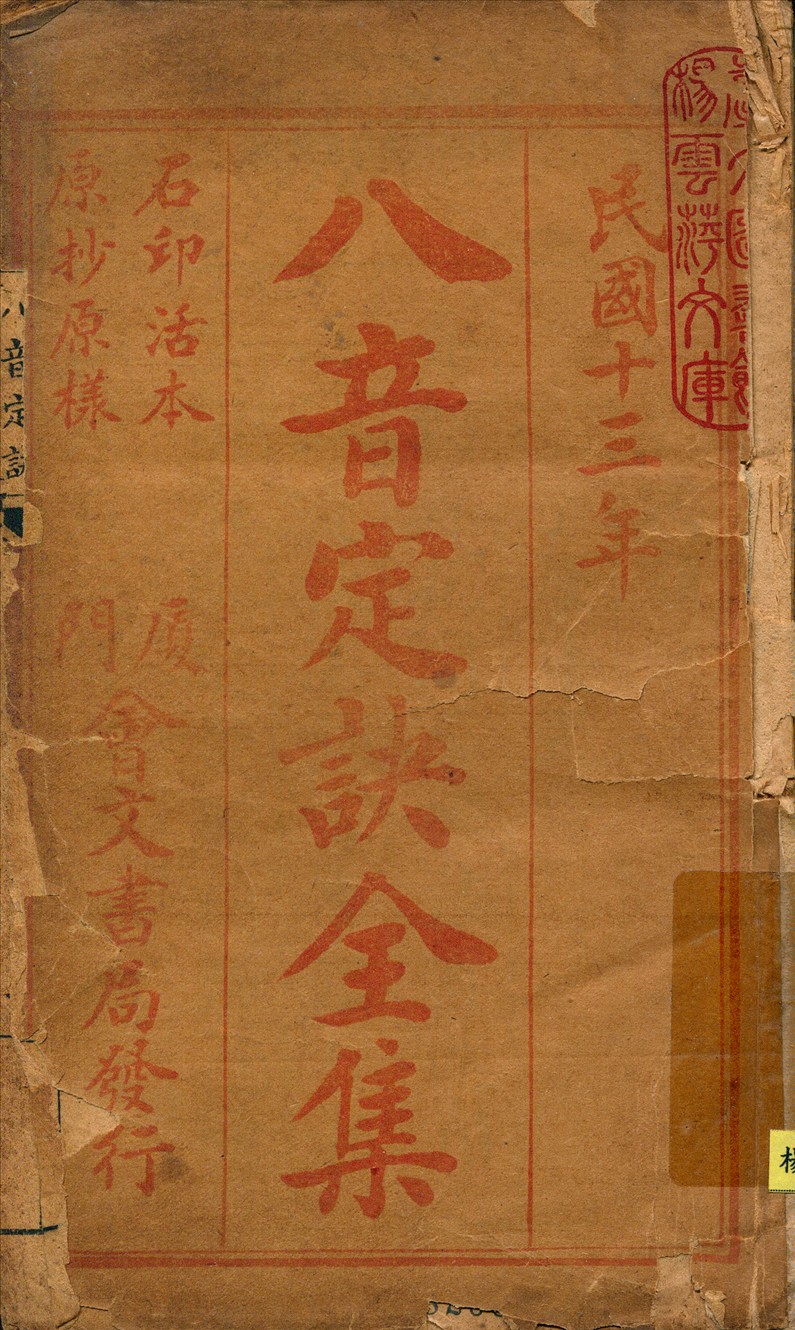 楊雲萍文庫
民國十三年
八音定訣全集
石印活本
原抄原樣
廈門
會文書局發行
八音定訣